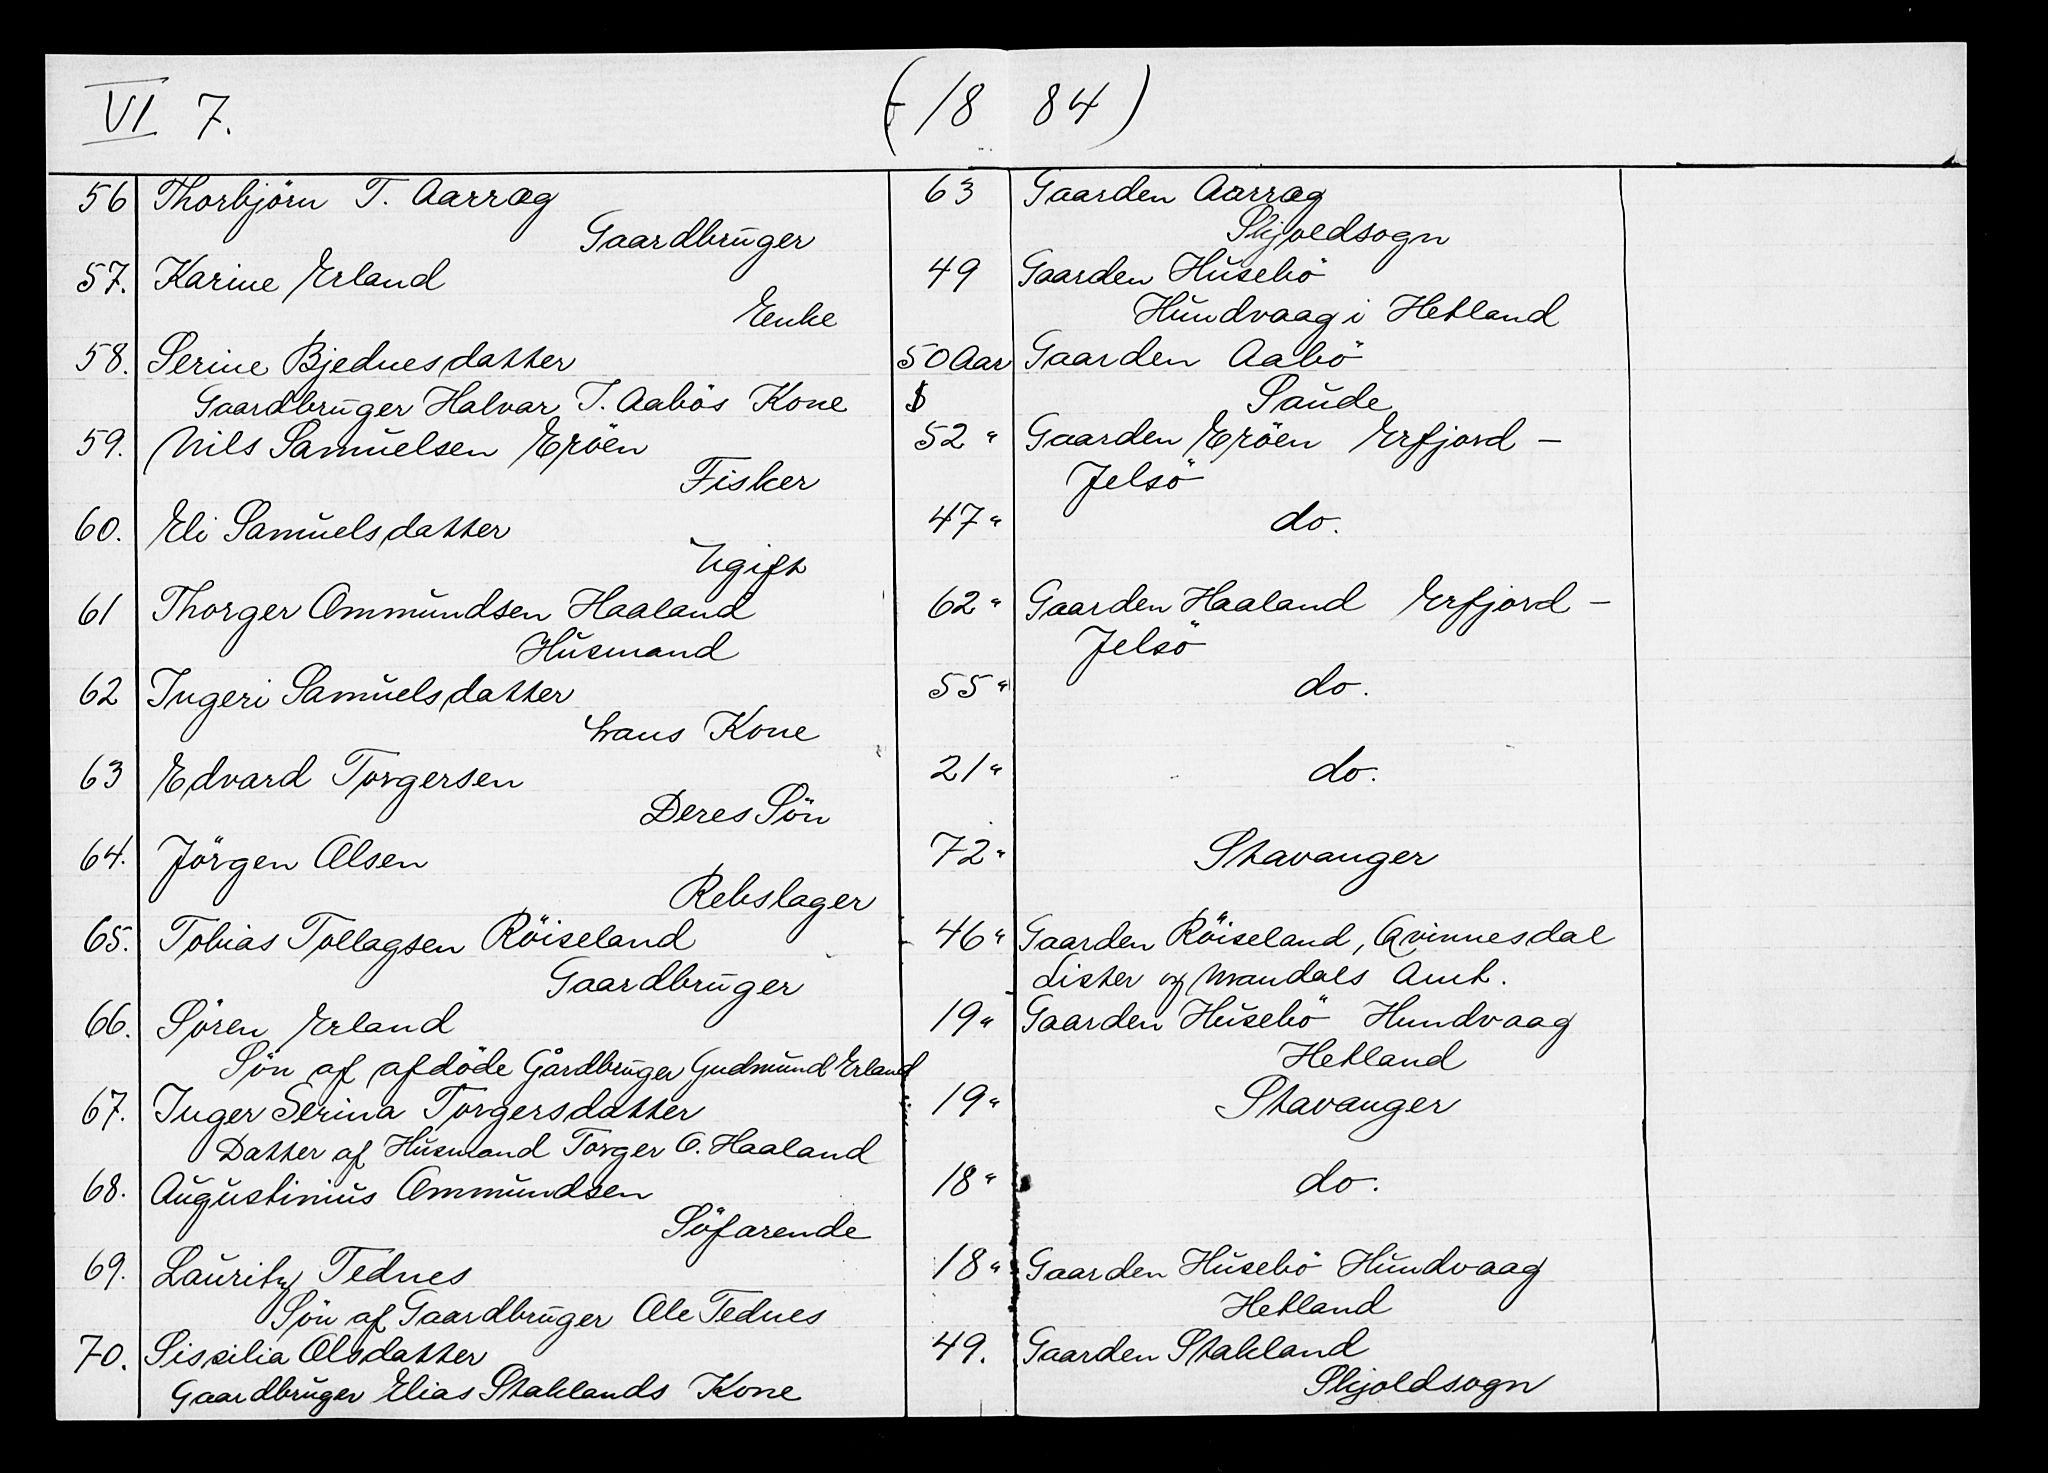 VI 7. (- 18 84)
56 Thorbjörn T. Aarræg 63 Gaarden Aarræg
Gaardbruger Skjoldsogn
57. Karine Erland 49 Gaarden Husebö
Enke Hundvaag i Hetland
58. Serine Bjednesdatter 50 Aar Gaarden Aabö
Gaardbruger Halvar I. Aabös Kone Saude
59. Nils Samuelsen Eröen 52 " Gaarden Eröen Erfjord -
Fisker Jelsö
60. Eli Samuelsdatter 47 " do.
Ugift
61 Thorger Ommundsen Haaland 62 " Gaarden Haaland Erfjord -
Husmand Jelsö
62 Ingeri Samuelsdatter 55 " do.
hans Kone
63 Edvard Torgersen 21 " do.
Deres Sön
64. Jörgen Olsen 72 " Stavanger
Rebslager
65. Tobias Tollagsen Röiseland 46 " Gaarden Röiseland, Qvinnesdal
Gaardbruger Lister og Mandals Amt.
66. Sören Erland 19 " Gaarden Husebö Hundvaag
Sön af afdöde Gårdbruger Gudmund Erland Hetland
67. Inger Serina Torgersdatter 19 " Stavanger
Datter af Husmand Torger O. Haaland
68. Augustinius Ommundsen 18 " do.
Söfarende
69. Lauritz Tednes 18 " Gaarden Husebö Hundvaag
Sön af Gaardbruger Ole Tednes Hetland
70. Sissilia Olsdatter 49. Gaarden Stakland
Gaardbruger Elias Staklands Kone Skjoldsogn